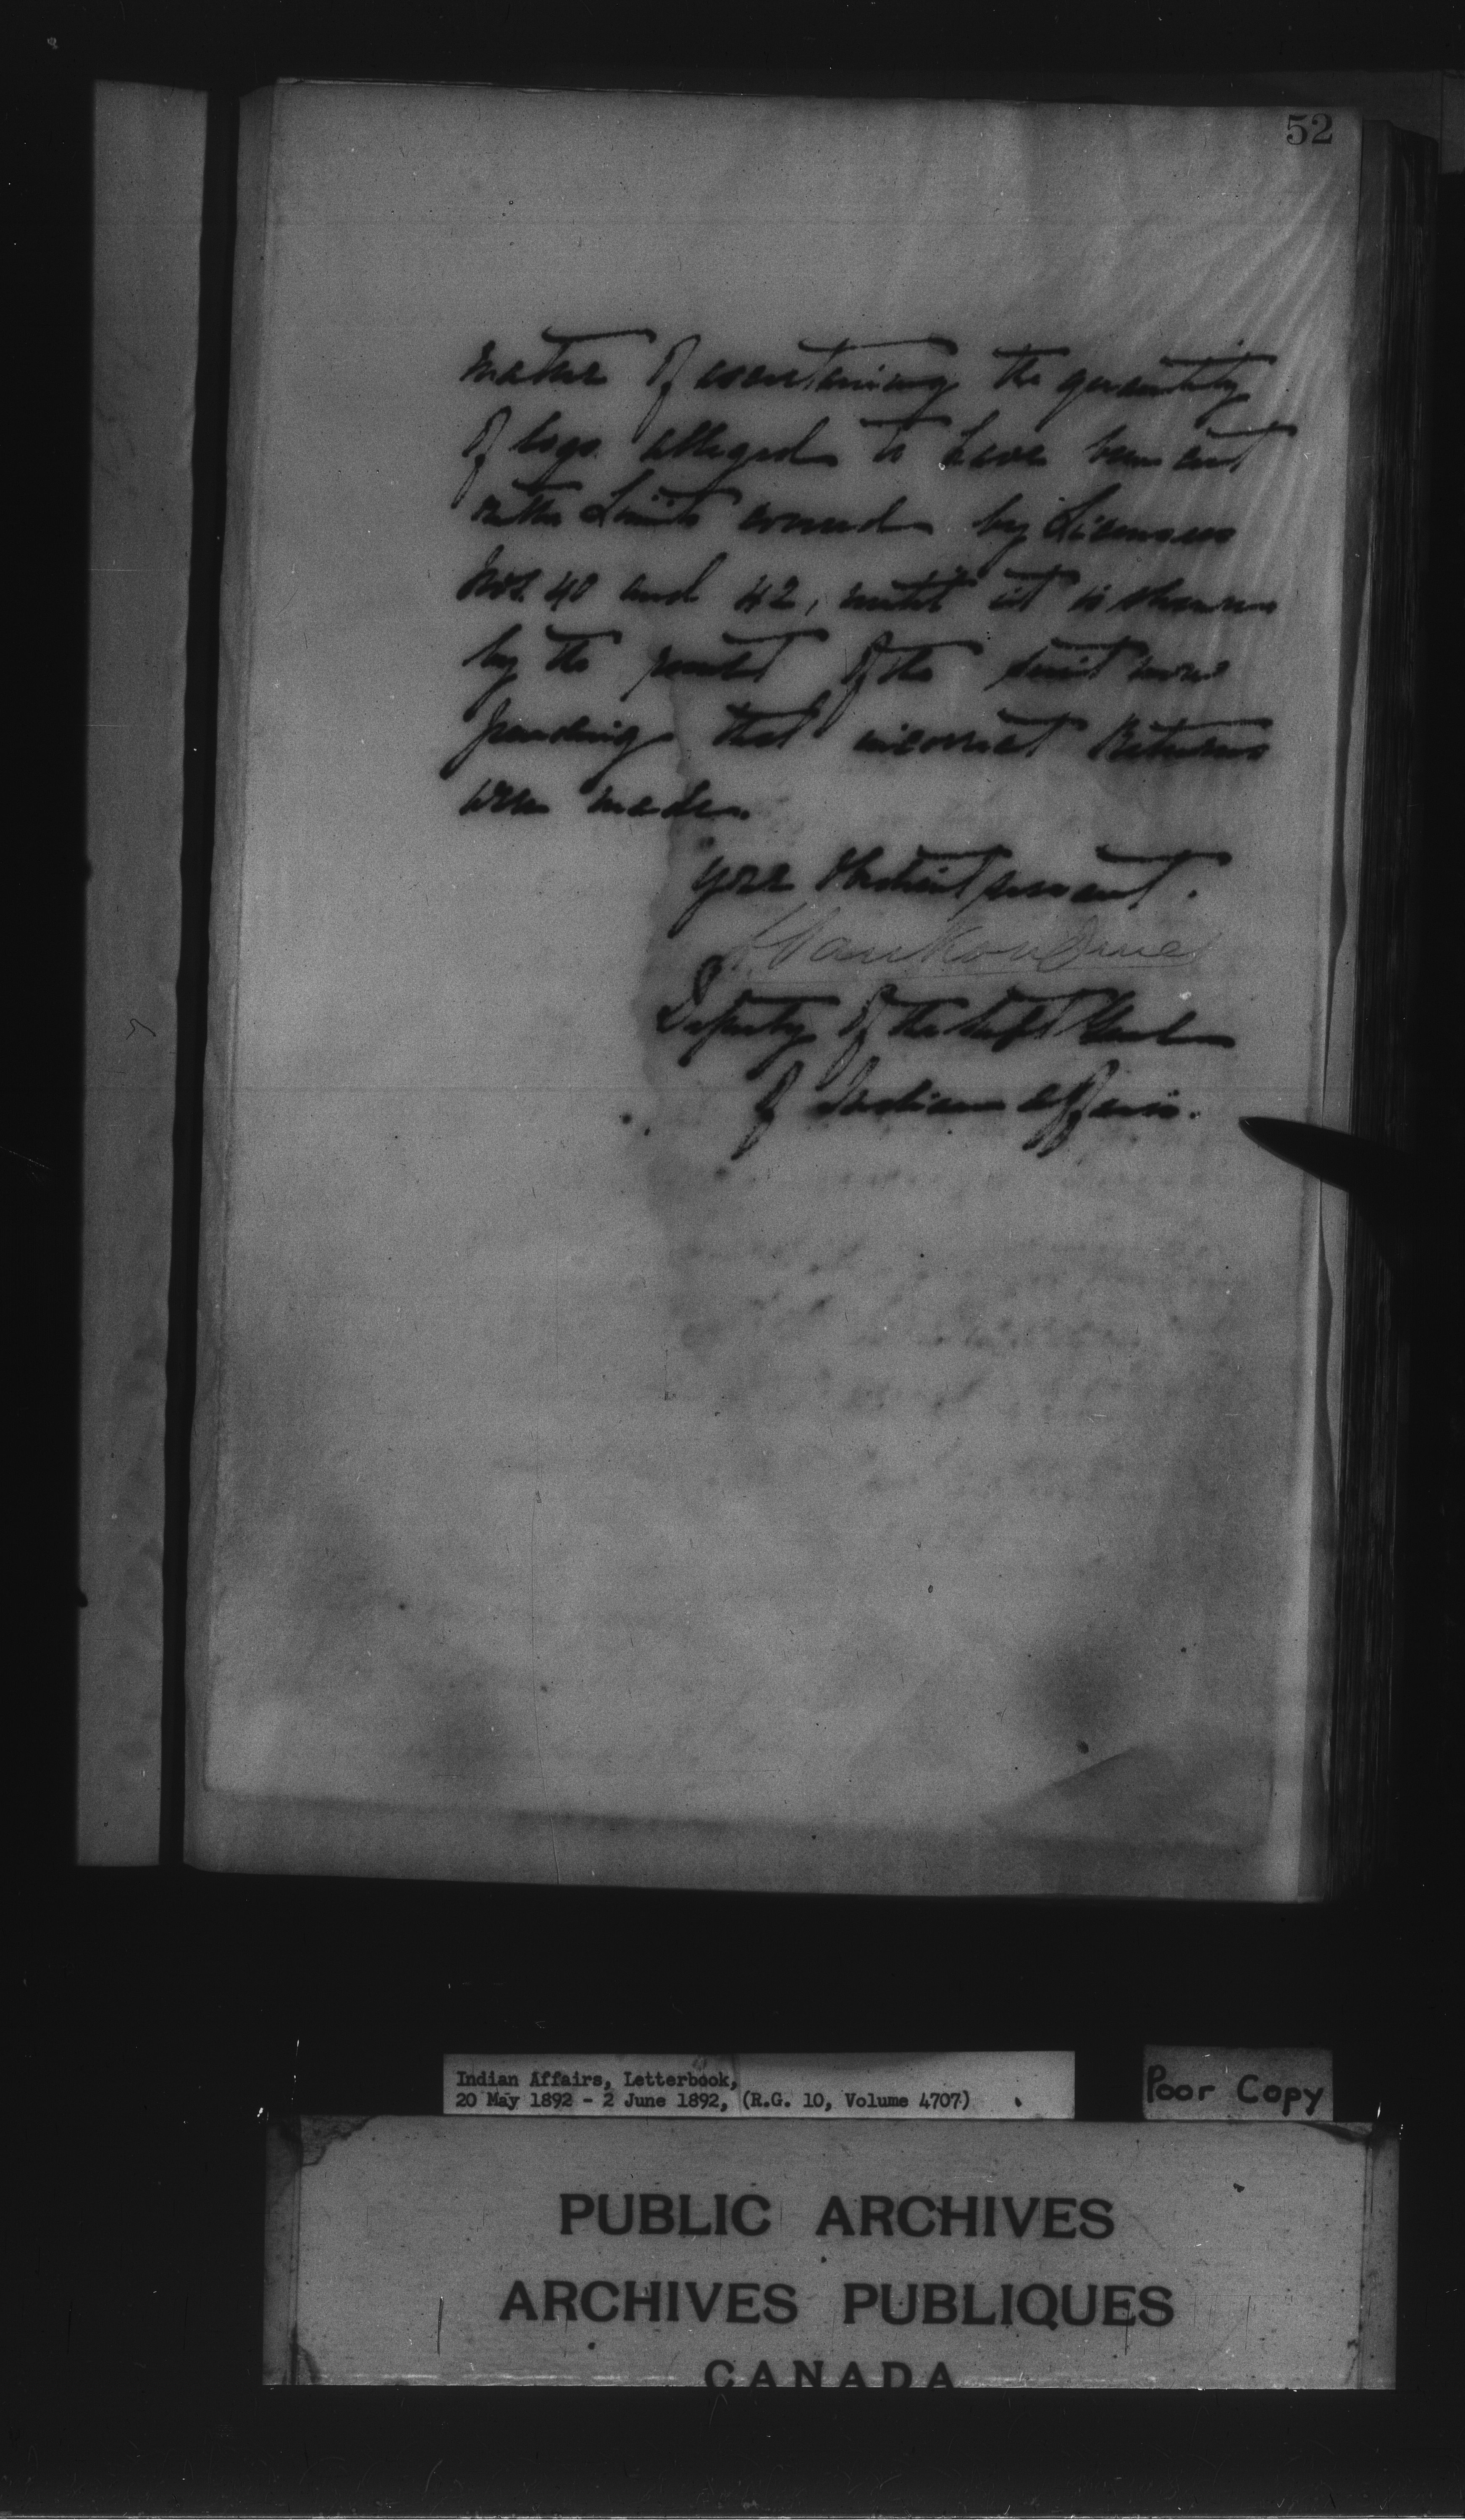 52
matter of ascertaining the quantity
of logs alleged to have been cut
on the Limits covered by Licenses
Nos. 40 and 42, until it is shown
by the result of the suit now
pending that incorrect Returns
were made.
Your obedient servant.
L Vankoughnet
Deputy of the Supt Genl
of Indian Affairs.
Indian Affairs, Letterbook,
20 May 1892 - 2 June 1892, (R.G. 10, Volume 4707)
Poor Copy
PUBLIC ARCHIVES
ARCHIVES PUBLIQUES
CANADA